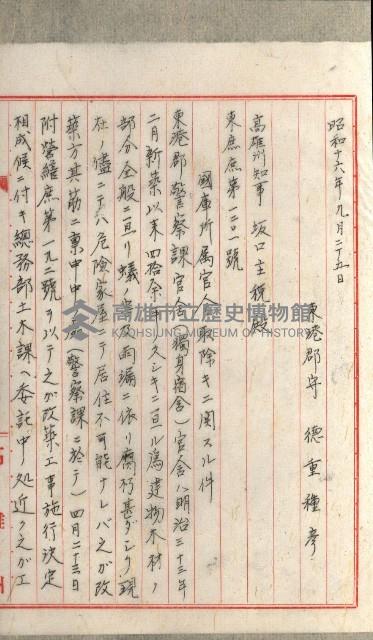 昭和十六年九月二十五日
東港郡守 德重種彥
高雄州知事 坂口主税殿
東庶庶第一二〇一號
國庫所属官舍取除キニ関スル件
東港郡警察課官舍(獨身宿舍)官舍ハ明治三十三年
二月新築以来四拾余年ノ久シキニ亘ル為建物木材ノ
部分全般ニ亘リ蟻ノ害及雨漏ニ依リ腐朽甚ダシク現
在ノ儘ニテハ危険家屋ニテ居住不可能ナレバ之ガ改
築方其筋ニ稟申中ノ處(警察課ニ於テ)四月二十三日
附營繕庶第一九二號ヲ以テ之ガ改築工事施行決定
相成候ニ付キ總務部土木課ヘ委託中ノ処近ク之ガ工
高雄市立歷史博物館
KAOHSIUNG MUSEUM OF HISTORY
高雄州